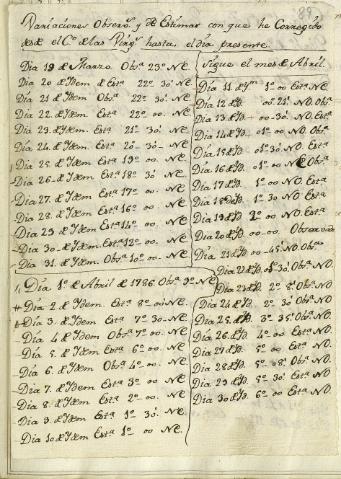 Variaciones Observ.s y de Estimas con que he Corregido
desde el C.o de las Virg.s hasta el dia presente.
Dia 19 de Marzo Obs.a 23º NE.
Dia 20 de Idem Est.a 22º 30' NE
Dia 21 de Idem Obs.a 22º 30' NE.
Dia 22 de Idem Est.a 22º 00 NE.
Dia 23 de Idem Est.a 21º 30' NE.
Dia 24 de Idem Est.a 20 - 30' NE
Dia 25 de Idem Est.a 19º 00. NE
Dia 26 de Idem Est.a 18º 30' NE
Dia 27 de Idem Est.a 17º 00. NE
Dia 28 de Idem Est.a 16º 00. NE
Dia 29 de Idem Est.a 14º 00. NE
Dia 30 de Idem Est.a 12º 00. NE
Dia 31 de Idem Obs.a 10º 00. NE
Dia 1º de Abril de 1786 Obs.a 9º NE
Dia 2 de Idem Est.a 8º 00 NE.
Dia 3 de Idem Est.a 7º 30 NE
Dia 4 de Idem Obs.a 7º 00. NE
Dia 5 de Idem Est.a 6º 00. NE
Dia 6 de Idem Obs.a 4º 00. NE
Dia 7 de Idem Est.a 3º 00 NE
Dia 8 de Idem Est.a 2º 00. NE
Dia 9 de Idem Est.a 1º 30' NE
Dia 10 de Idem Est.a 1º 00 NE
Sigue el mes de Abril.
Dia 11 de Idm 1º 00 NE Est.a
Dia 12 de ID. 00 21' NO. Obs.a
Dia 13 de ID. 00 30' NO. Est.a
Dia 14 de ID. 01º 00 NO. Obs.a
Dia 15 de ID. 01º 30' NO. Est.a
Dia 16 de ID. 01º 00 NO Obs.a
Dia 17 de ID. 1º 00 NO. Est.a
Dia 18 de ID. 1º 30 NO Est.a
Dia 19 de ID. 2º 00 NO Est.a
Dia 20 de ID. 00 00. Observada
Dia 21 de ID. 00 45' NO Obs.a
Dia 22 de ID. 1º 30' Obs.a NO.
Dia 23 de ID. 2º 5' Obs.a NO.
Dia 24 de ID. 2º 30 Obs.a NO
Dia 25 de ID. 3º 35' Obs.a NO.
Dia 26 de ID. 4º 00 Est.a NO
Dia 27 de ID. 5º 00 Est.a NO
Dia 28 de ID. 5º Obs.a NO.
Dia 29 de ID. 5º 30' Est.a NO
Dia 30 de ID. 6º 00 Est.a NO.